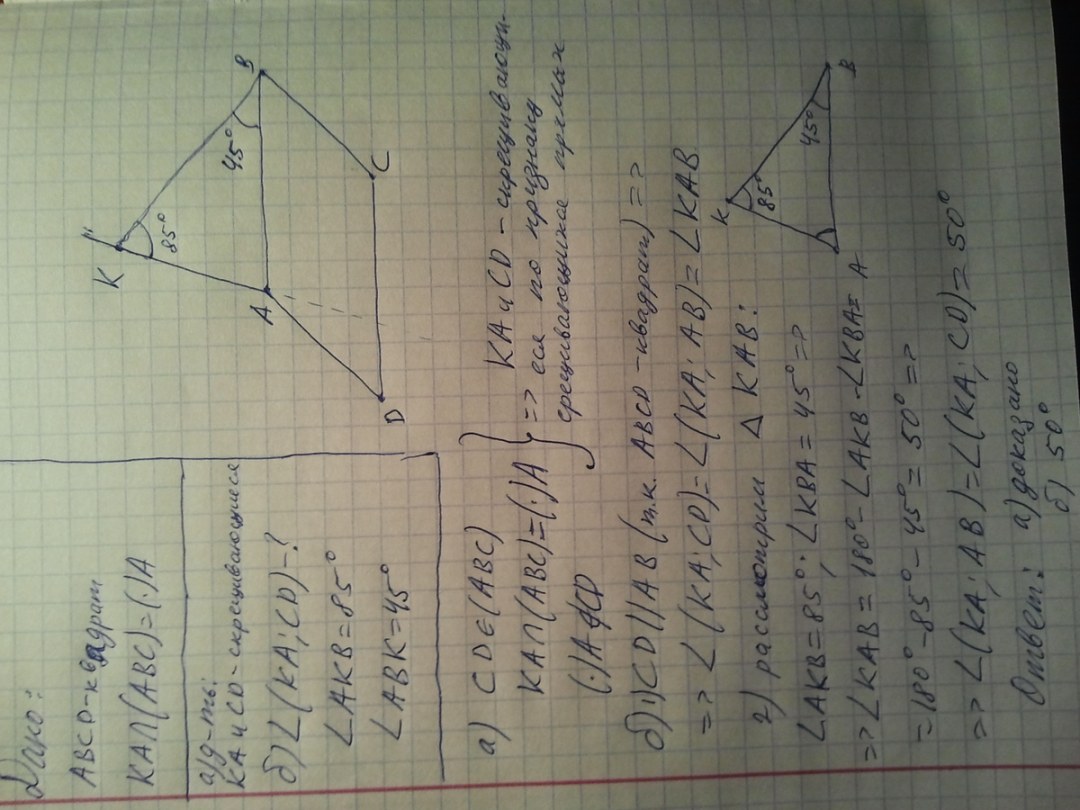 Дано:
ABCD-квадрат
KA∩(ABC)=(·)A
а) д-ть:
KA и CD-скрещивающиеся
б) ∠(KA;CD)-?
∠AKB=85°
∠ABK=45°
K
85°
45°
B
A
D
C
а) CD∈(ABC)
KA∩(ABC)=(·)A
(·)A∉CD
=> KA и CD - скрещивающи-
еся по признаку
скрещивающихся прямых
б) 1) CD||AB (т.к. ABCD-квадрат) =>
=> ∠(KA;CD)=∠(KA;AB)=∠KAB
2) рассмотрим △KAB:
∠AKB=85°; ∠KBA=45° =>
=> ∠KAB=180°-∠AKB-∠KBA=
=180°-85°-45°=50° =>
=> ∠(KA;AB)=∠(KA;CD)=50°
K
85°
45°
B
A
Ответ: а) доказано
б) 50°